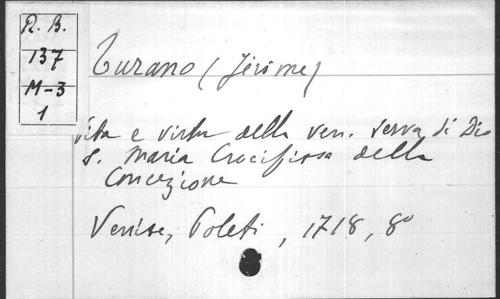 R. B.
137
M-3
1
Turano (Jérôme)
Vita e virtu della ven. serva di Dio
S. Maria Crocifissa della
Concezione
Venise, Poleti, 1718, 8°